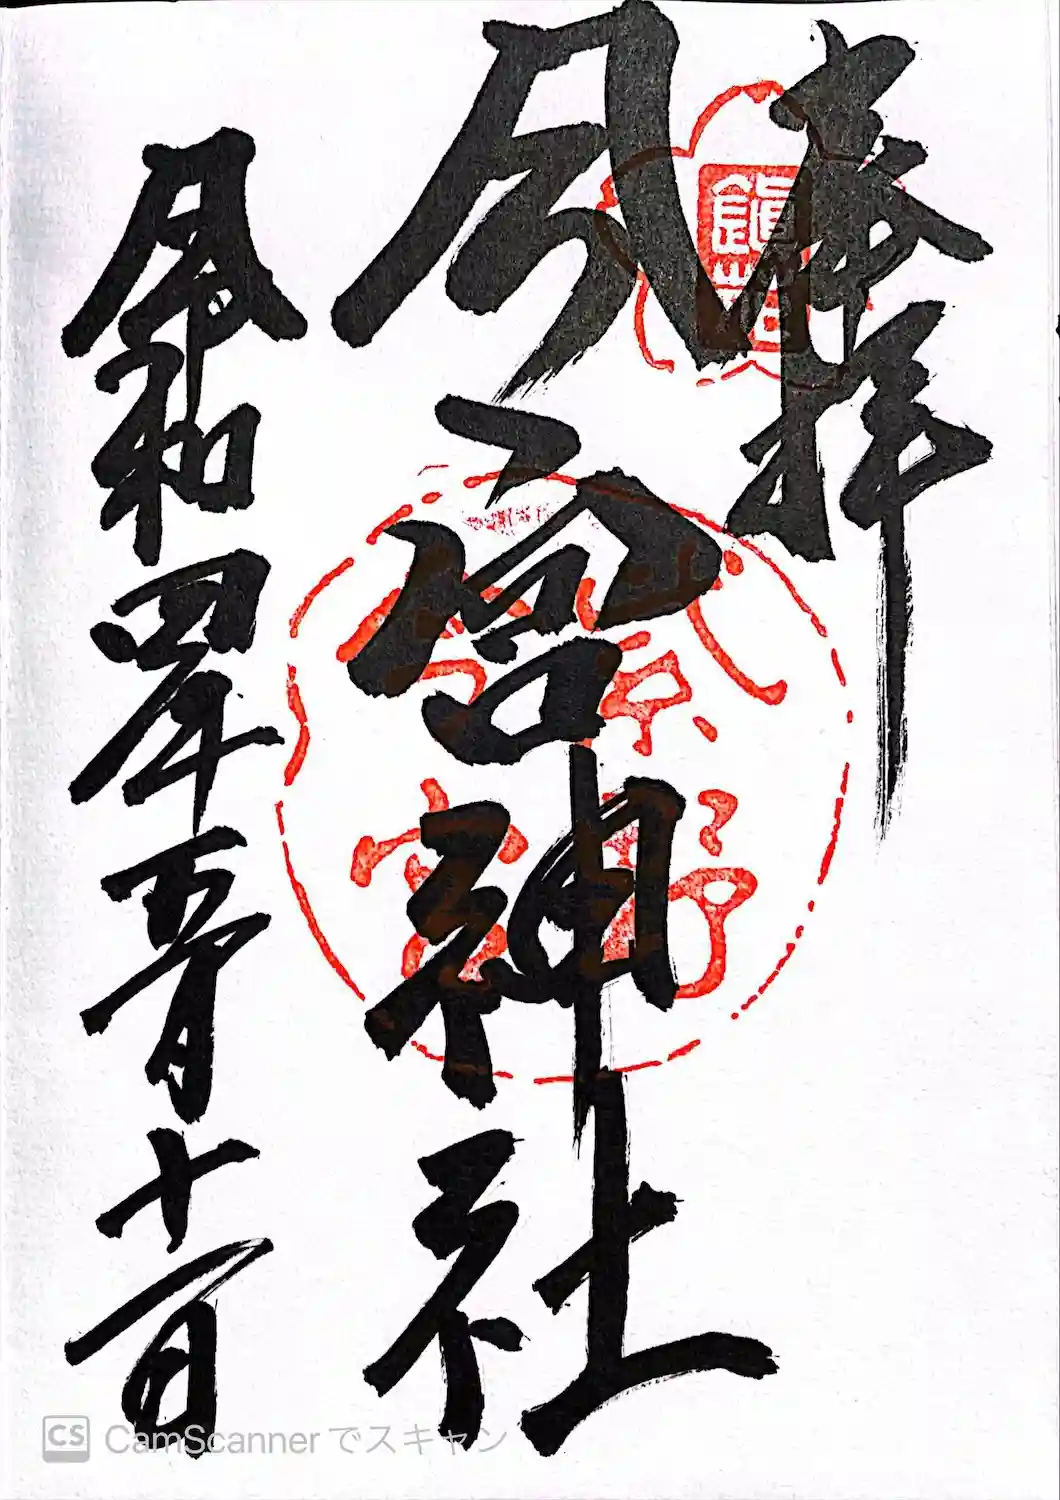 奉拝
今宮神社
紫野
今宮
令和四年五月十一日
CS CamScannerでスキャン